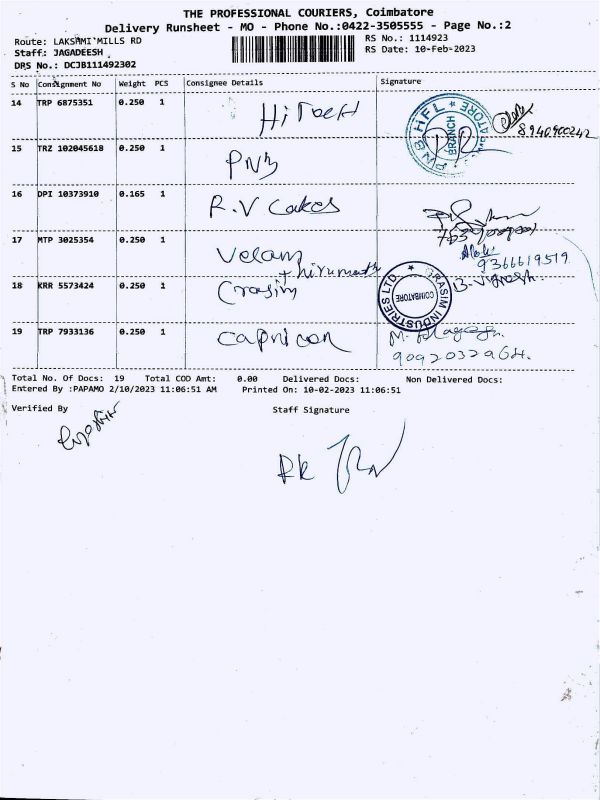 THE PROFESSIONAL COURIERS, Coimbatore
Delivery Runsheet - MO - Phone No.:0422-3505555 - Page No.:2
Route: LAKSHMI MILLS RD RS No.: 1114923
Staff: JAGADEESH . RS Date: 10-Feb-2023
DRS No.: DCJB111492302
S No Consignment No Weight PCS Consignee Details Signature
14 TRP 6875351 0.250 1 HiTech
PNB HFL BRANCH
8940900242
15 TRZ 102045618 0.250 1 PNB
16 DPI 10373910 0.165 1 R.V Cakes
17 MTP 3025354 0.250 1 Velam
9366619519
18 KRR 5573424 0.250 1 Grasim
GRASIM INDUSTRIES LTD. COIMBATORE
19 TRP 7933136 0.250 1 Capricon
9092032964.
Total No. Of Docs: 19 Total COD Amt: 0.00 Delivered Docs: Non Delivered Docs:
Entered By :PAPAMO 2/10/2023 11:06:51 AM Printed On: 10-02-2023 11:06:51
Verified By Staff Signature